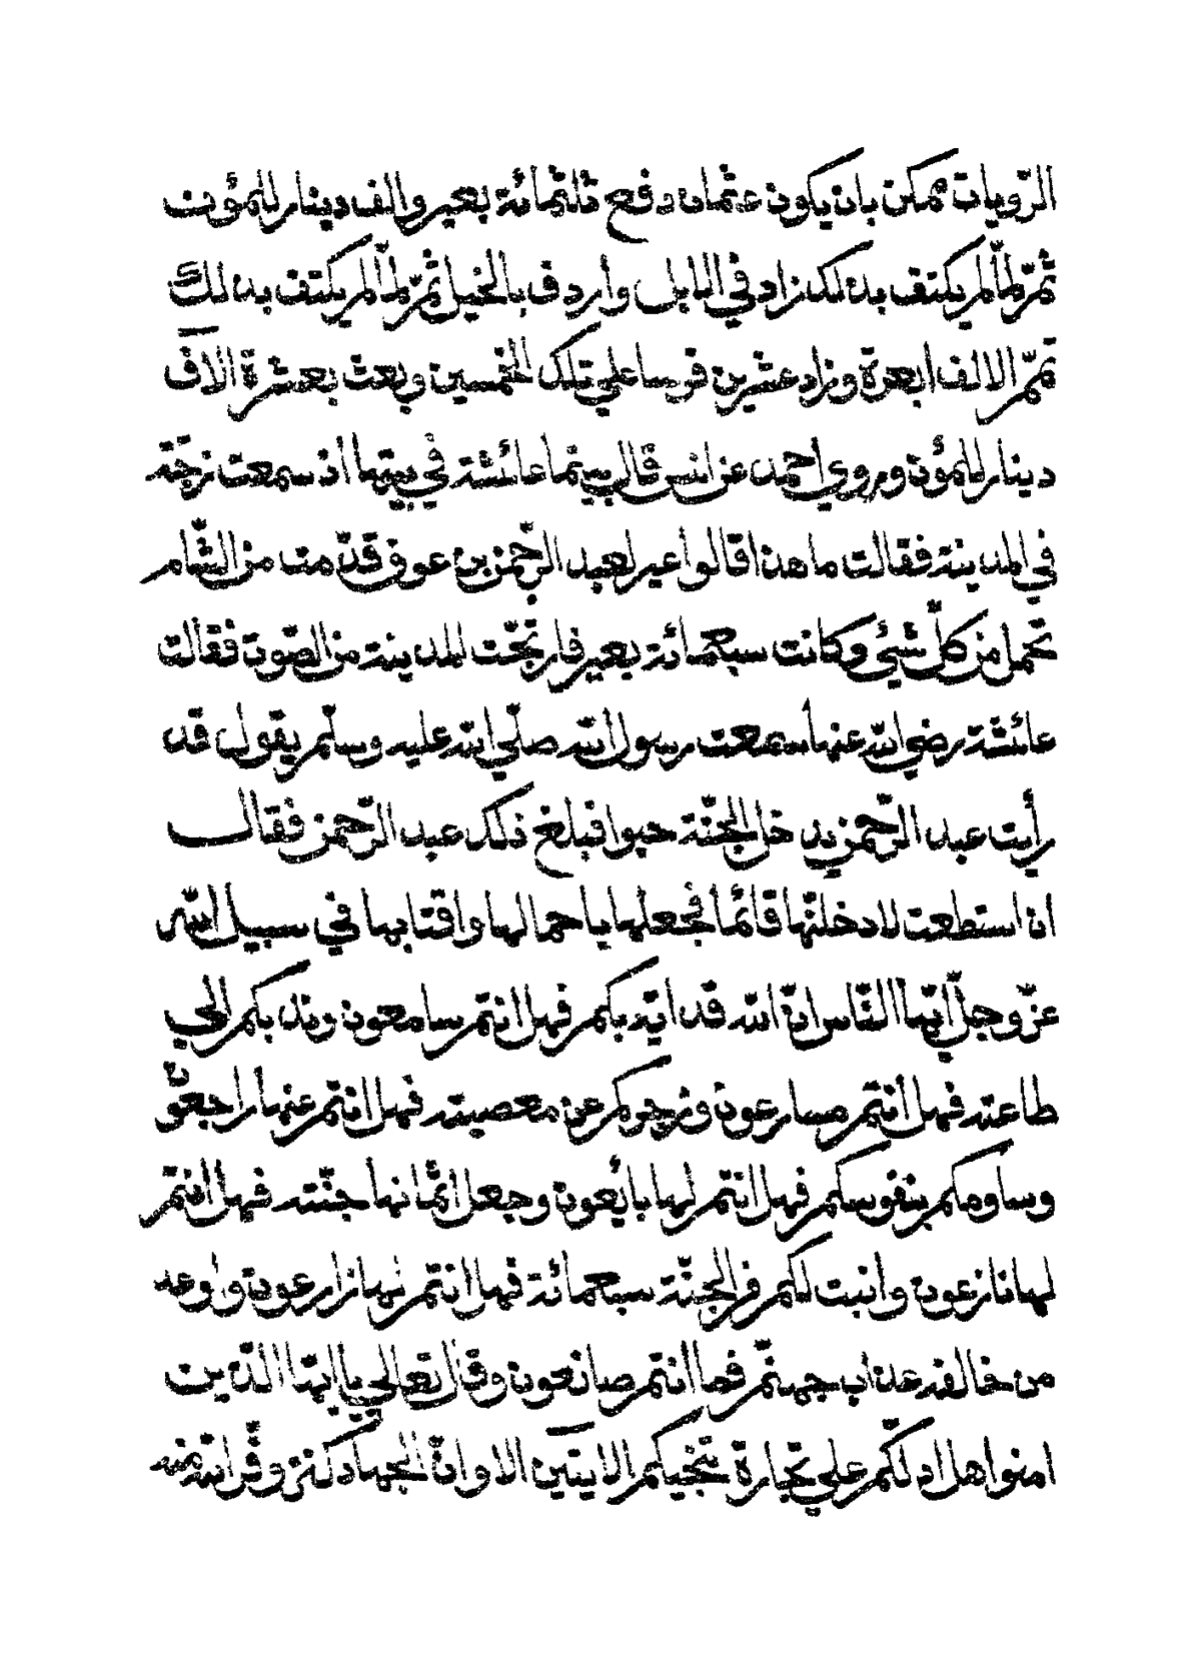 الرّويات ممكن بان يكون عثمان دفع ثلثمائة بعير والف دينار للمؤن
ثمّ لمّا لم يكتف بذلك زاد في الابل وأردف بالخيل ثمّ لمّا لم يكتف بذلك
تمّم الالف ابعرة وزاد عشرين فرسا علي تلك الخمسين وبعث بعشرة الآف
دينار للمؤن وروي احمد عن انس قال بينما عائشة في بيتها اذ سمعت رجّة
في المدينة فقالت ما هذا قالوا عير لعبد الرّحمن بن عوف قدّمت من الشّام
تحمل من كلّ شئي وكانت سبعمائة بعير فارتجّت المدينة من الصّوت فقالت
عائشة رضي الله عنها سمعت رسول الله صلّي الله عليه وسلّم يقول قد
رأيت عبد الرّحمن يدخل الجنّة حبوا فبلغ ذلك عبد الرّحمن فقال
ان استطعت لادخلنّها قائما فجعلها باحمالها واقتابها في سبيل الله
عزّ وجلّ ايّها النّاس انّ الله قد ايّه بكم فهل انتم سامعون وندبكم الي
طاعته فهل أنتم مسارعون وزجركم عن معصيته فهل انتم عنها راجعون
وساومكم بنفوسكم فهل انتم لها بائعون وجعل اثمانها جنّته فهل انتم
لها نازعون وأنبت لكم في الجنّة سبعمائة فهل انتم لها زارعون واوعد
من خالفه عذاب جهنّم فما انتم صانعون وقال تعالي يا ايّها الّذين
امنوا هل ادلّكم علي تجارة تنجيكم الايتين الا وانّ الجهاد كنز وفّر الله منه